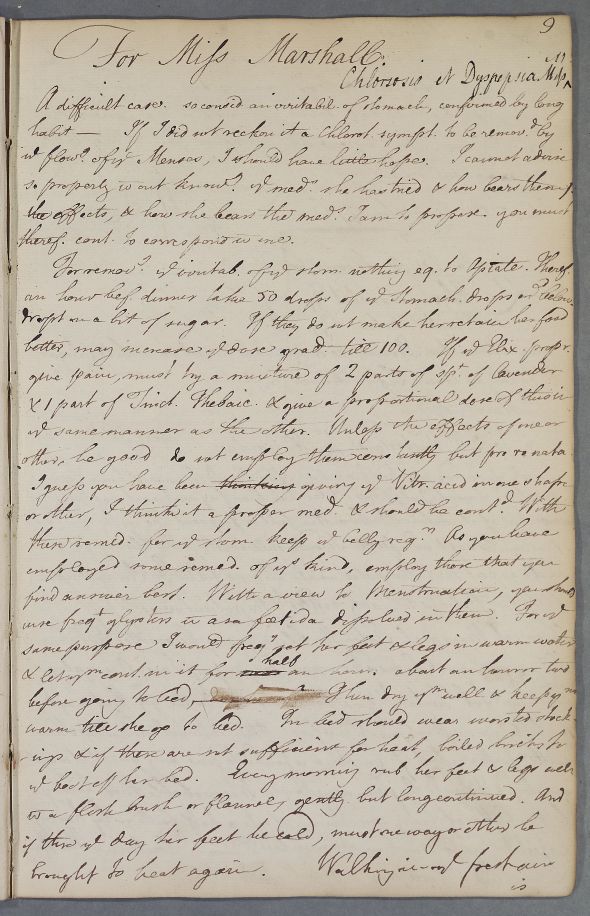 9
For Miss Marshall.
Chlorosis et Dyspepsia.
A difficult case. so consid. an irritabil. of stomach, confirmed by long
habit — If I did not reckon it a Chlorot. sympt. to be remov.d by
ye flowg. of ye Menses, I should have little hope. I cannot advise
so properly wout knowg. ye meds. she has tried & how bears them,
the effects, & how she bears the meds. I am to propose. you must
theref. cont. to correspond w me.
For remov.g ye irritab. of ye stom. nothing eq. to Opiate. Theref.
an hour bef. dinner take 50 drops of ye Stomach. drops
dropt on a bit of sugar. If they do not make her retain her food
better, may increase ye dose grad. till 100. If ye Elix. propr.
give pain, must try a mixture of 2 parts of spt. of Lavender
& 1 part of Tinct. Thebaic. & give a proportional dose of this in
ye same manner as the other. Unless the effects of one or
other, be good do not employ them constantly but pro re nata
I guess you have been thinking giving ye Vitr. acid in one shape
or other, I think it a proper med. & should be contd. With
these remed. for ye stom. keep ye belly regr. As you have
employed some remed. of ys kind, employ those that you
find answer best. With a view to Menstruation, you should
use freqt glysters w asa foetida dissolved in them. For ye
same purpose I would freqy put her feet & legs in warm water
& let ym cont. in it for half an hour. about an hour or two
before going to bed, Then dry ym well & keep ym
warm till she go to bed. In bed should wear worsted stock-
-ings & if these are not sufficient for heat, boiled bricks to
ye boot of her bed. Every morning rub her feet & legs well
w a flesh brush or flannel, gently but long continued. And
if thro ye day her feet be cold, must one way or other be
brought to heat again. Walking in ye fresh air
is